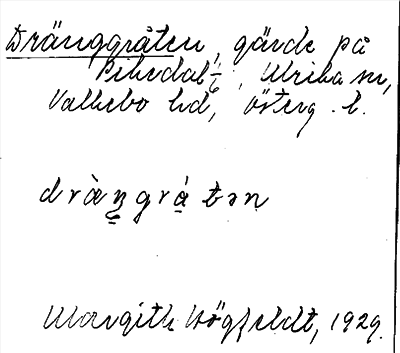 Dränggråten, gärde på
Pikedal 1/6, Ulrika sn,
Valkebo hd, Österg. l.
dràŋgrátən
Margith Högfeldt, 1929.